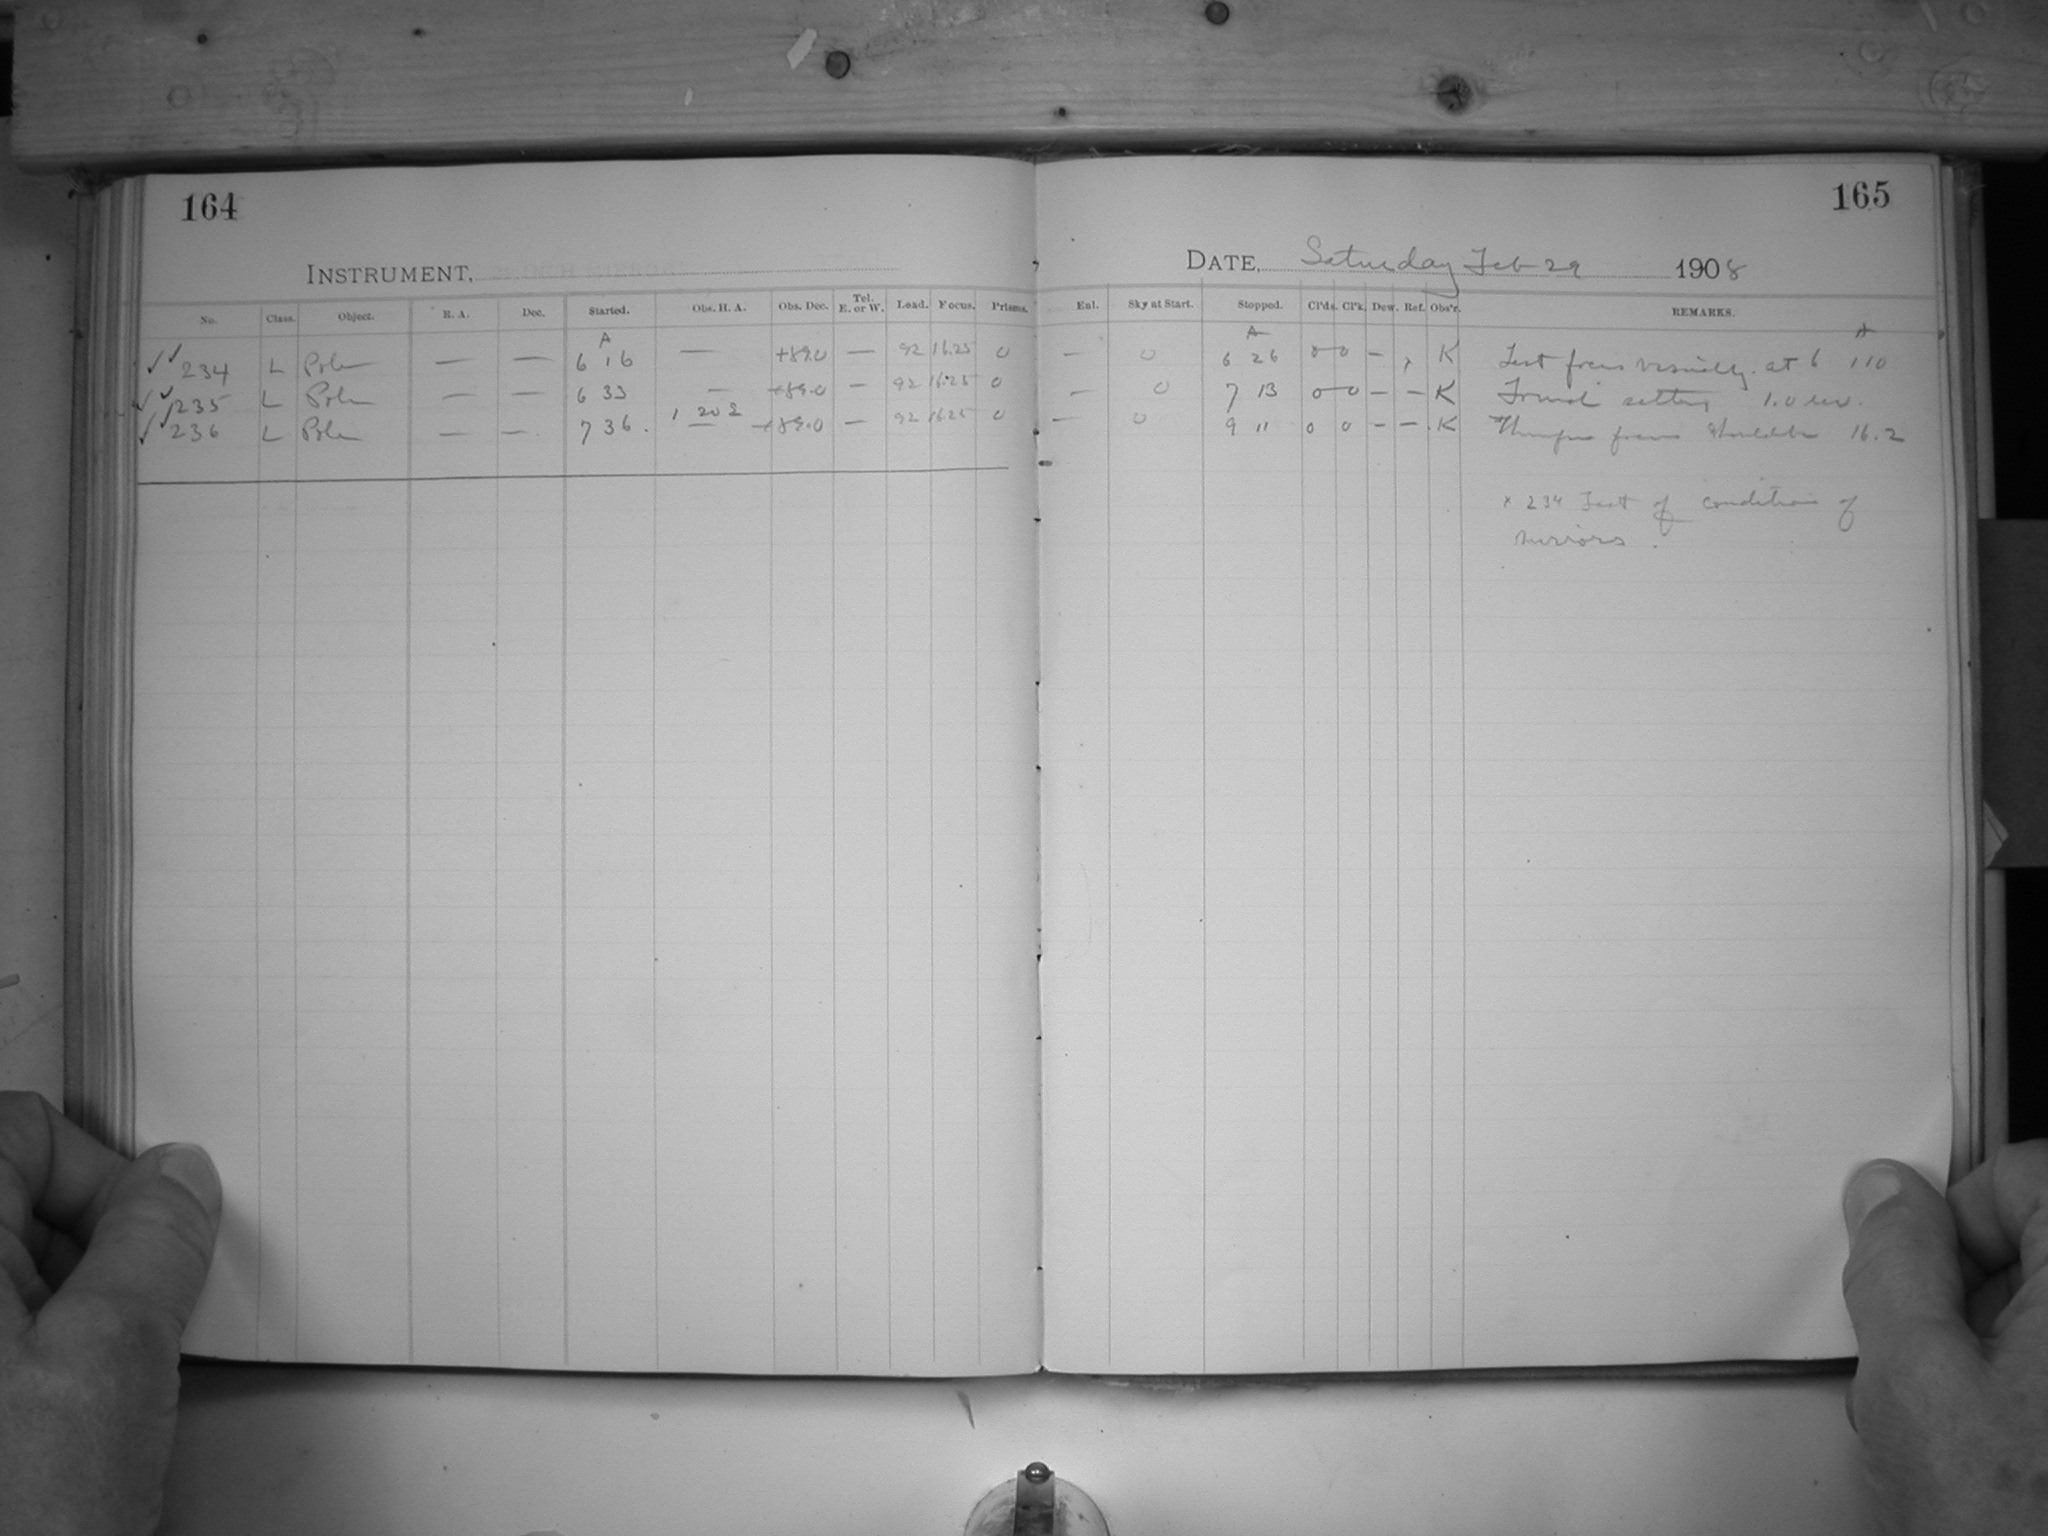 164
165
INSTRUMENT,
DATE, Saturday Feb 29 1908
No. Class. Object. R. A. Dec. Started. Obs. H. A. Obs. Dec. Tel. E. or W. Lead. Focus. Prisms. Enl. Sky at Start. Stopped. Cl'ds. Cl'k. Dew. Ref. Obs'r. REMARKS.
A A A
✓✓ 234 L Pole — — 6 16 — +89.0 — 92 16.25 0 — 0 6 26 0 0 — K Test focus visually. at 6 110
✓✓ 235 L Pole — — 6 33 — +89.0 — 92 16.25 0 — 0 7 13 0 0 — — K Found setting 1.0 rev.
1 20 2
✓✓ 236 L Pole — — 7 36. — +89.0 — 92 16.25 0 — 0 9 11 0 0 — — K focus should be 16.2
x 234 Test of condition of
mirrors.